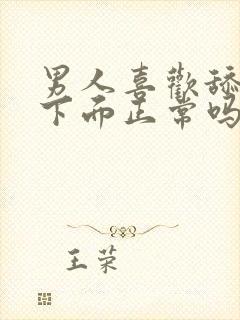 男人喜歡舔
下面正常吗
王荣